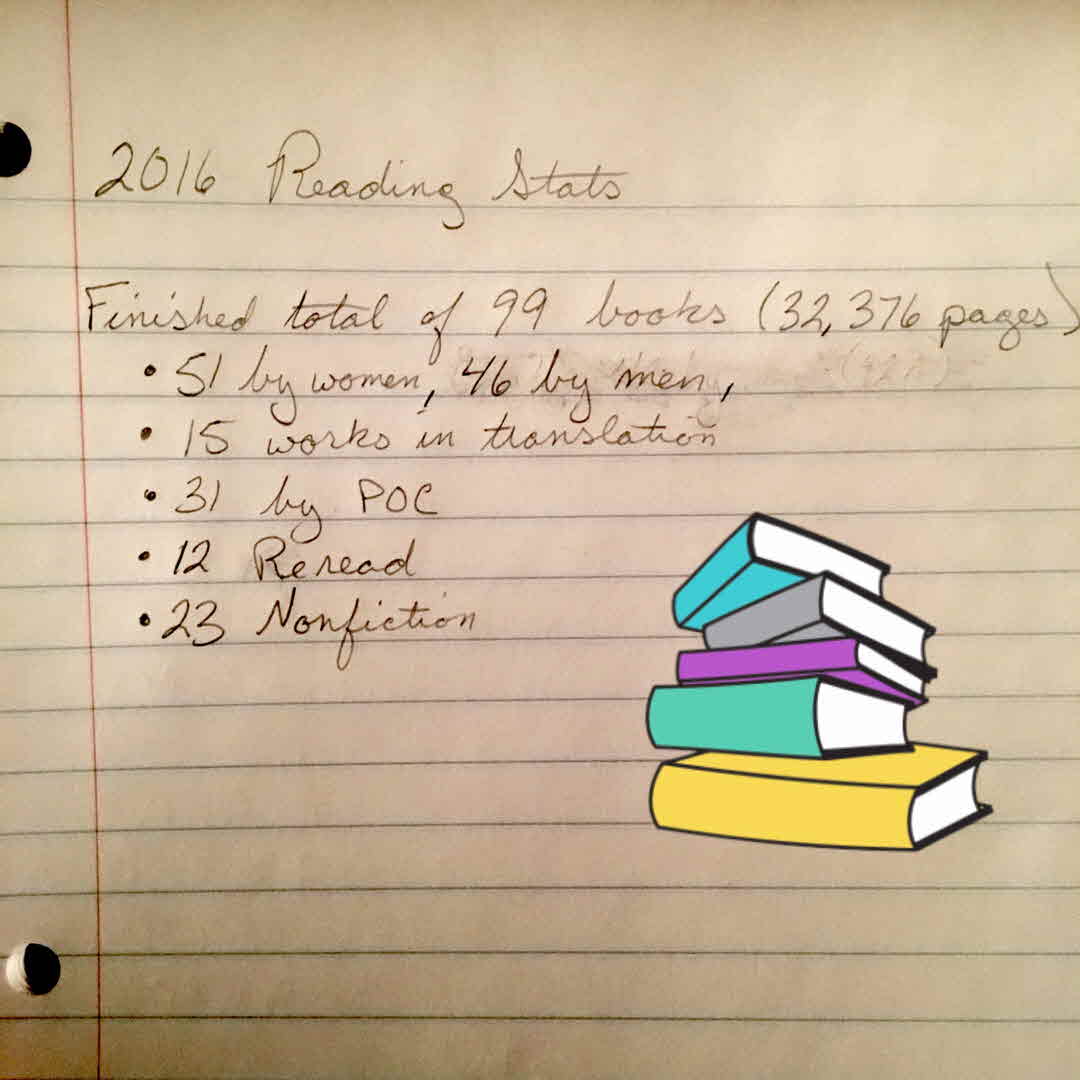 2016 Reading Stats
Finished total of 99 books (32,376 pages)
• 51 by women, 46 by men,
• 15 works in translation
• 31 by POC
• 12 Reread
• 23 Nonfiction